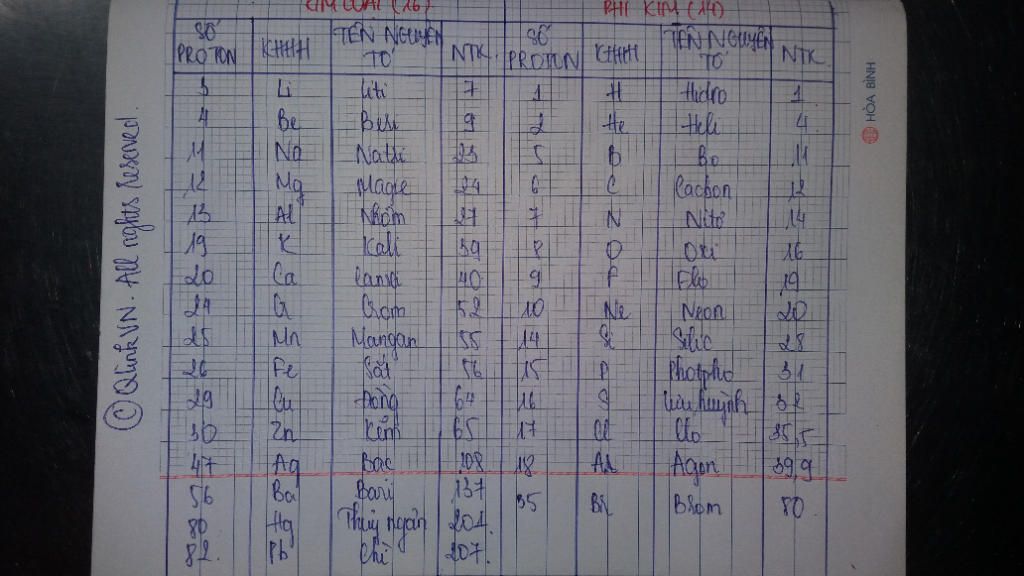 KIM LOẠI (16) PHI KIM (14)
SỐ PROTON KHHH TÊN NGUYÊN TỐ NTK SỐ PROTON KHHH TÊN NGUYÊN TỐ NTK
3 Li Liti 7 1 H Hidro 1
4 Be Beri 9 2 He Heli 4
11 Na Natri 23 5 B Bo 11
12 Mg Magie 24 6 C Cacbon 12
13 Al Nhôm 27 7 N Nitơ 14
19 K Kali 39 8 O Oxi 16
20 Ca Canxi 40 9 F Flo 19
24 Cr Crom 52 10 Ne Neon 20
25 Mn Mangan 55 14 Si Silic 28
26 Fe Sắt 56 15 P Photpho 31
29 Cu Đồng 64 16 S Lưu huỳnh 32
30 Zn Kẽm 65 17 Cl Clo 35,5
47 Ag Bạc 108 18 Ar Agon 39,9
56 Ba Bari 137 35 Br Brom 80
80 Hg Thủy ngân 201
82 Pb Chì 207
© QlinkVN. All rights reserved.
HÒA BÌNH